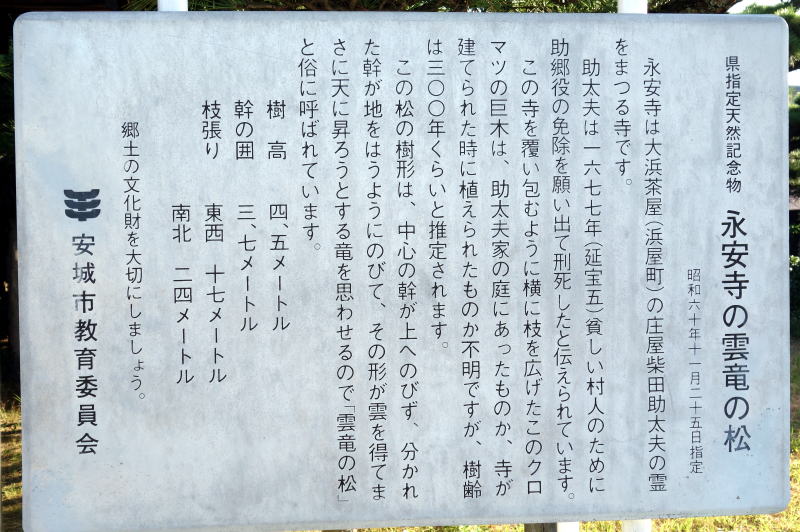 県指定天然記念物 永安寺の雲竜の松
昭和六十年十一月二十五日指定
永安寺は大浜茶屋（浜屋町）の庄屋柴田助太夫の霊
をまつる寺です。
助太夫は一六七七年（延宝五）貧しい村人のために
助郷役の免除を願い出て刑死したと伝えられています。
この寺を覆い包むように横に枝を広げたこのクロ
マツの巨木は、助太夫家の庭にあったものか、寺が
建てられた時に植えられたものか不明ですが、樹齢
は三〇〇年くらいと推定されます。
この松の樹形は、中心の幹が上へのびず、分かれ
た幹が地をはうようにのびて、その形が雲を得てま
さに天に昇ろうとする竜を思わせるので「雲竜の松」
と俗に呼ばれています。
樹 高 四、五メートル
幹の囲 三、七メートル
枝張り 東西 十七メートル
南北 二四メートル
郷土の文化財を大切にしましょう。
安城市教育委員会